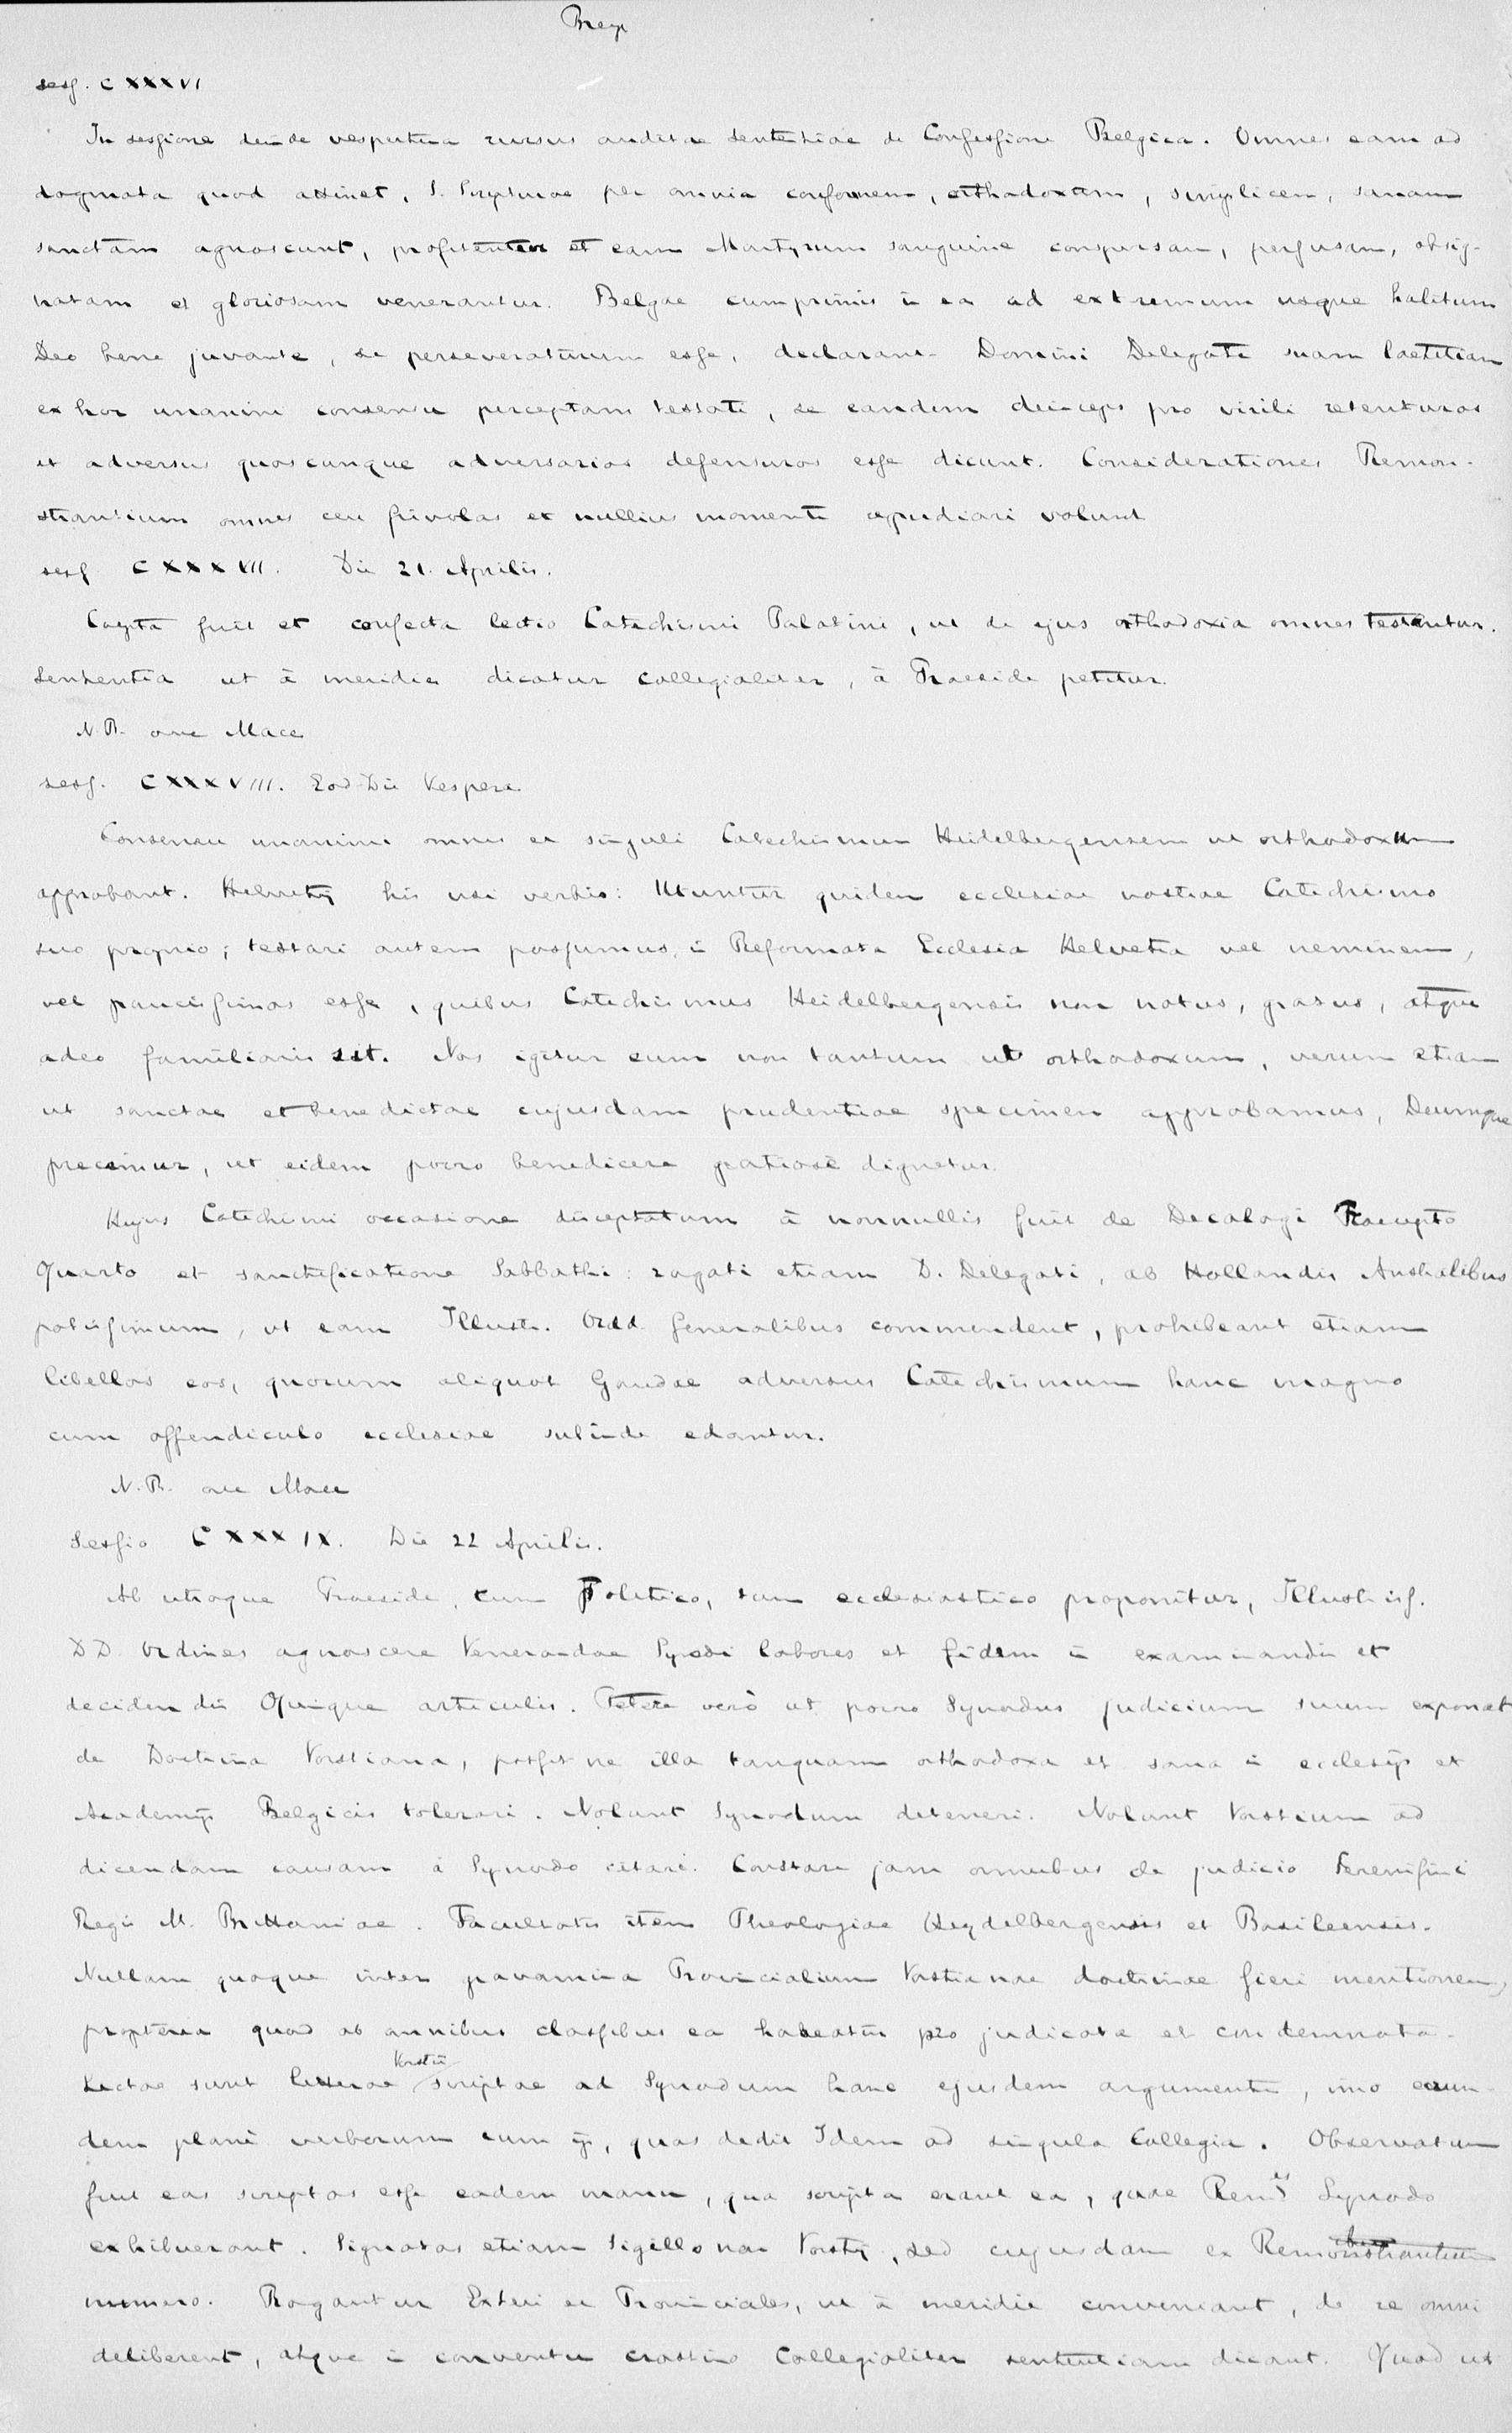 Brey
sess. CXXXVI
In sessione deinde vespertina rursus auditae sententiae de Confessione Belgica. Omnes eam ad
dogmata quod attinet, S. Scripturae per omnia conformem, orthodoxam, simplicem, sanam
sanctam agnoscunt, profitentur et eam Martyrum sanguine conspersam, perfusam, obsig-
natam et gloriosam venerantur. Belgae cumprimis in ea ad extremum usque halitum
Deo bene juvante, se perseveraturum esse, declarant. Domini Delegati suam laetitiam
ex hoc unanimi consensu perceptam testati, se eandem deinceps pro virili retenturos
et adversus quoscunque adversarios defensuros esse dicunt. Considerationes Remon-
strantium omnes ceu frivolas et nullius momenti repudiari volunt
sess CXXXVII. Die 21. Aprilis.
Coepta fuit et confecta lectio Catechismi Palatini, ut de ejus orthodoxia omnes testentur.
Sententia ut à meridie dicatur collegialiter, à Praeside petitur.
N.B. ane Mace
sess. CXXXVIII. Eod Die Vespere
Consensu unanimi omnes et singuli Catechismum Heidelbergensem ut orthodoxum
approbant. Helvetij his usi verbis: Utuntur quidem ecclesiae nostrae Catechismo
suo proprio; testari autem possumus, in Reformata Ecclesia Helvetia vel neminem,
vel paucissimos esse, quibus Catechismus Heidelbergensis non notus, gratus, atque
adeo familiaris sit. Nos igitur eum non tantum ut orthodoxum, verum etiam
ut sanctae et benedictae cujusdam prudentiae specimen approbamus, Deumque
precamur, ut eidem porro benedicere gratiosè dignetur.
Hujus Catechismi occasione disceptatum à nonnullis fuit de Decalogi Praecepto
Quarto et sanctificatione Sabbathi: rogati etiam D. Delegati, ab Hollandis Australibus
potissimum, ut eam Illustr. Ordd. Generalibus commendent, prohibeant etiam
libellos eos, quorum aliquot Goudae adversus Catechismum hunc magno
cum offendiculo ecclesiae subinde edantur.
N.B. ane Mace
Sessio CXXXIX. Die 22 Aprilis.
Ab utroque Praeside, tum Politico, tum ecclesiastico proponitur, Illustriss.
DD. Ordines agnoscere Venerandae Synodi labores et fidem in examinandis et
decidendis Quinque articulis. Petere verò ut porro Synodus judicium suum exponat
de Doctrina Vorstiana, possit ne illa tanquam orthodoxa et sana in ecclesijs et
Academijs Belgicis tolerari. Nolunt Synodum detineri. Nolunt Vorstium ad
dicendam causam à Synodo citari. Constare jam omnibus de judicio Serenissimi
Regis M. Brittaniae. Facultatis item Theologiae Heydelbergensis et Basileensis.
Nullam quoque inter gravamina Provincialium Vorstianae doctrinae fieri mentionem,
propterea quod ab omnibus classibus ea habeatur pro judicata et condemnata.
Lectae sunt litterae Vorstii scriptae ad Synodum hanc ejusdem argumenti, imo eorun-
dem planè verborum cum ijs, quas dedit Idem ad singula Collegia. Observatum
fuit eas scriptas esse eadem manu, qua scripta erant ea, quae Remes Synodo
exhibuerant. Signatas etiam Sigillo non Vorstij, sed cujusdam ex Remonstrantium
numero. Rogantur Exteri et Provinciales, ut à meridie conveniant, de re omni
deliberent, atque in conventu crastino Collegialiter sententiam dicant. Quod ut